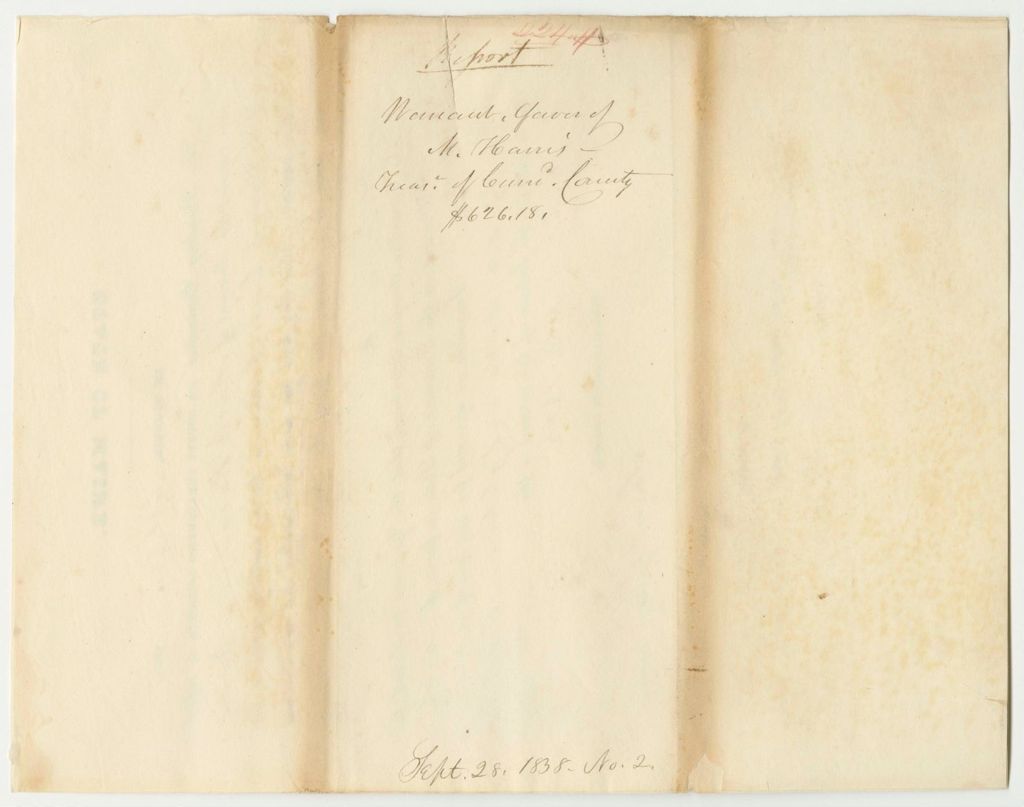 Report
Warrant, favor of
M. Harris –
Treasr. of Cumd. County
$626.18.
Sept. 28. 1838. No. 2.